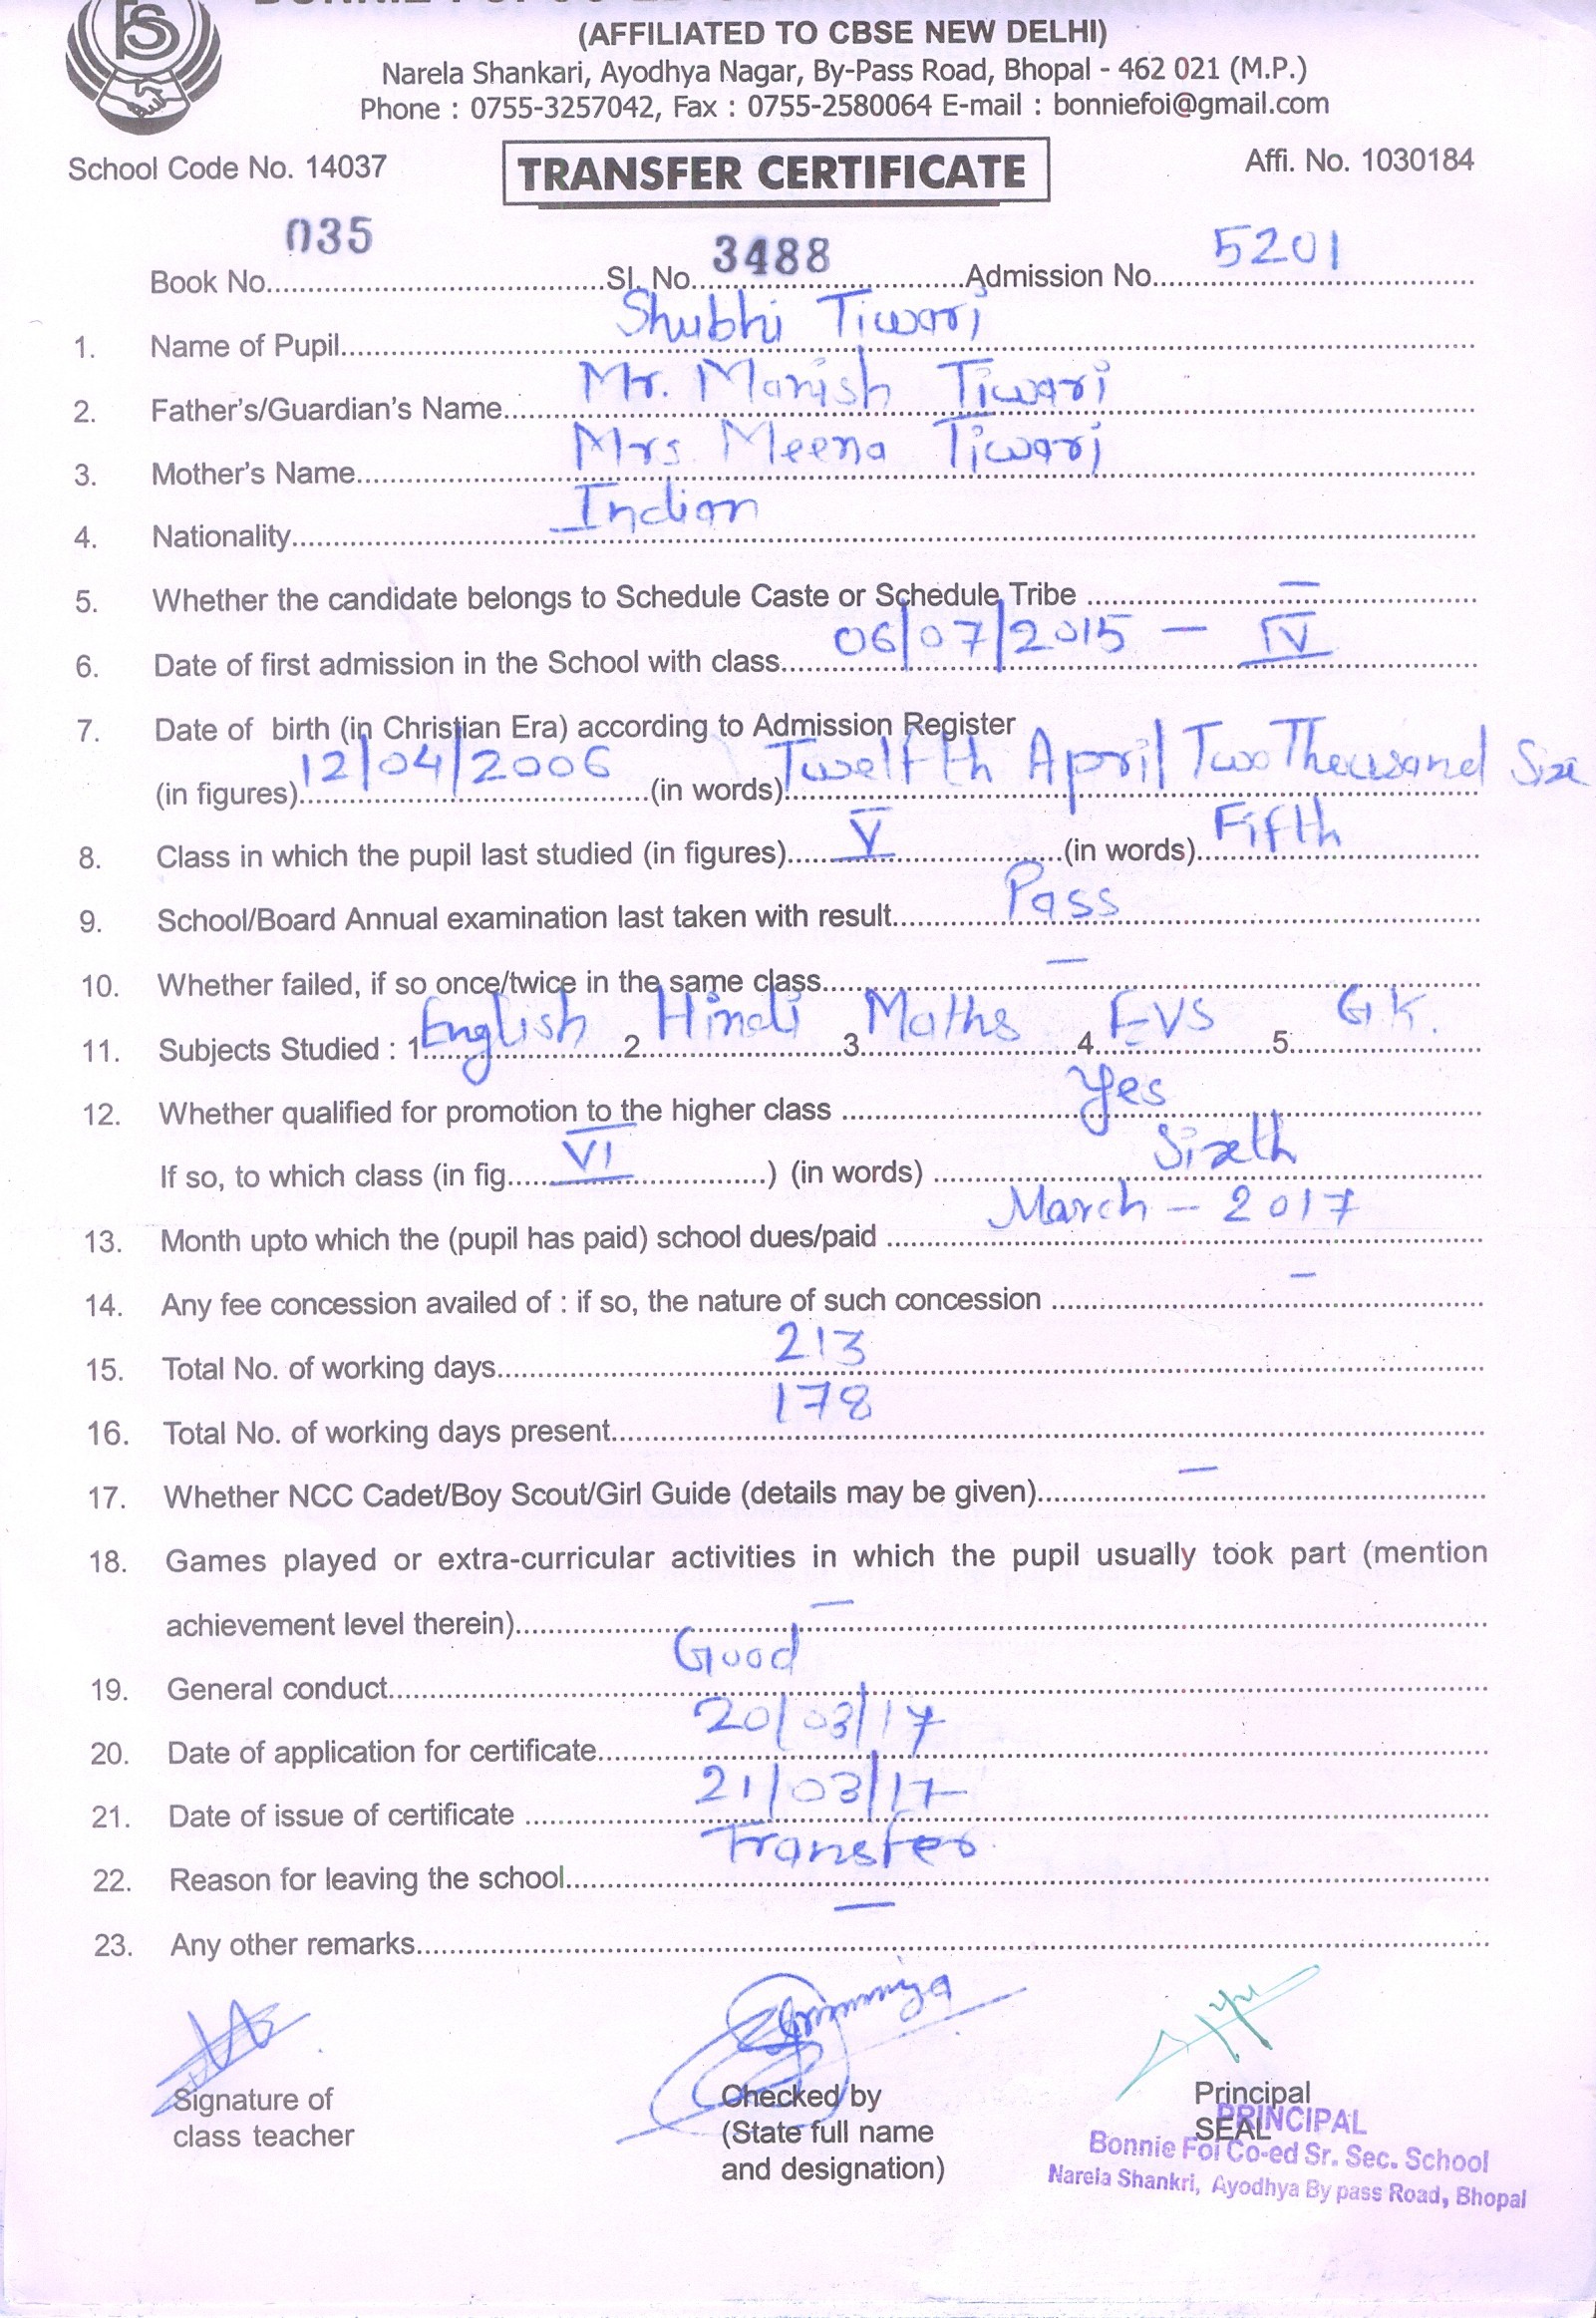 (AFFILIATED TO CBSE NEW DELHI)
Narela Shankari, Ayodhya Nagar, By-Pass Road, Bhopal - 462 021 (M.P.)
Phone : 0755-3257042, Fax : 0755-2580064 E-mail : bonniefoi@gmail.com
School Code No. 14037 TRANSFER CERTIFICATE Affi. No. 1030184
Book No. 035 Sl. No. 3488 Admission No. 5201
1. Name of Pupil Shubhi Tiwari
2. Father's/Guardian's Name Mr. Manish Tiwari
3. Mother's Name Mrs. Meena Tiwari
4. Nationality Indian
5. Whether the candidate belongs to Schedule Caste or Schedule Tribe —
6. Date of first admission in the School with class 06/07/2015 — IV
7. Date of birth (in Christian Era) according to Admission Register
(in figures) 12/04/2006 (in words) Twelfth April Two Thousand Six
8. Class in which the pupil last studied (in figures) V (in words) Fifth
9. School/Board Annual examination last taken with result Pass
10. Whether failed, if so once/twice in the same class —
11. Subjects Studied : 1 English 2 Hindi 3 Maths 4 EVS 5 G.K.
12. Whether qualified for promotion to the higher class Yes
If so, to which class (in fig. VI ) (in words) Sixth
13. Month upto which the (pupil has paid) school dues/paid March – 2017
14. Any fee concession availed of : if so, the nature of such concession —
15. Total No. of working days 213
16. Total No. of working days present 178
17. Whether NCC Cadet/Boy Scout/Girl Guide (details may be given) —
18. Games played or extra-curricular activities in which the pupil usually took part (mention
achievement level therein) —
19. General conduct Good
20. Date of application for certificate 20/03/17
21. Date of issue of certificate 21/03/17
22. Reason for leaving the school Transfer
23. Any other remarks —
Signature of
class teacher
Checked by
(State full name
and designation)
Principal
SEAL
PRINCIPAL
Bonnie Foi Co-ed Sr. Sec. School
Narela Shankri, Ayodhya By pass Road, Bhopal